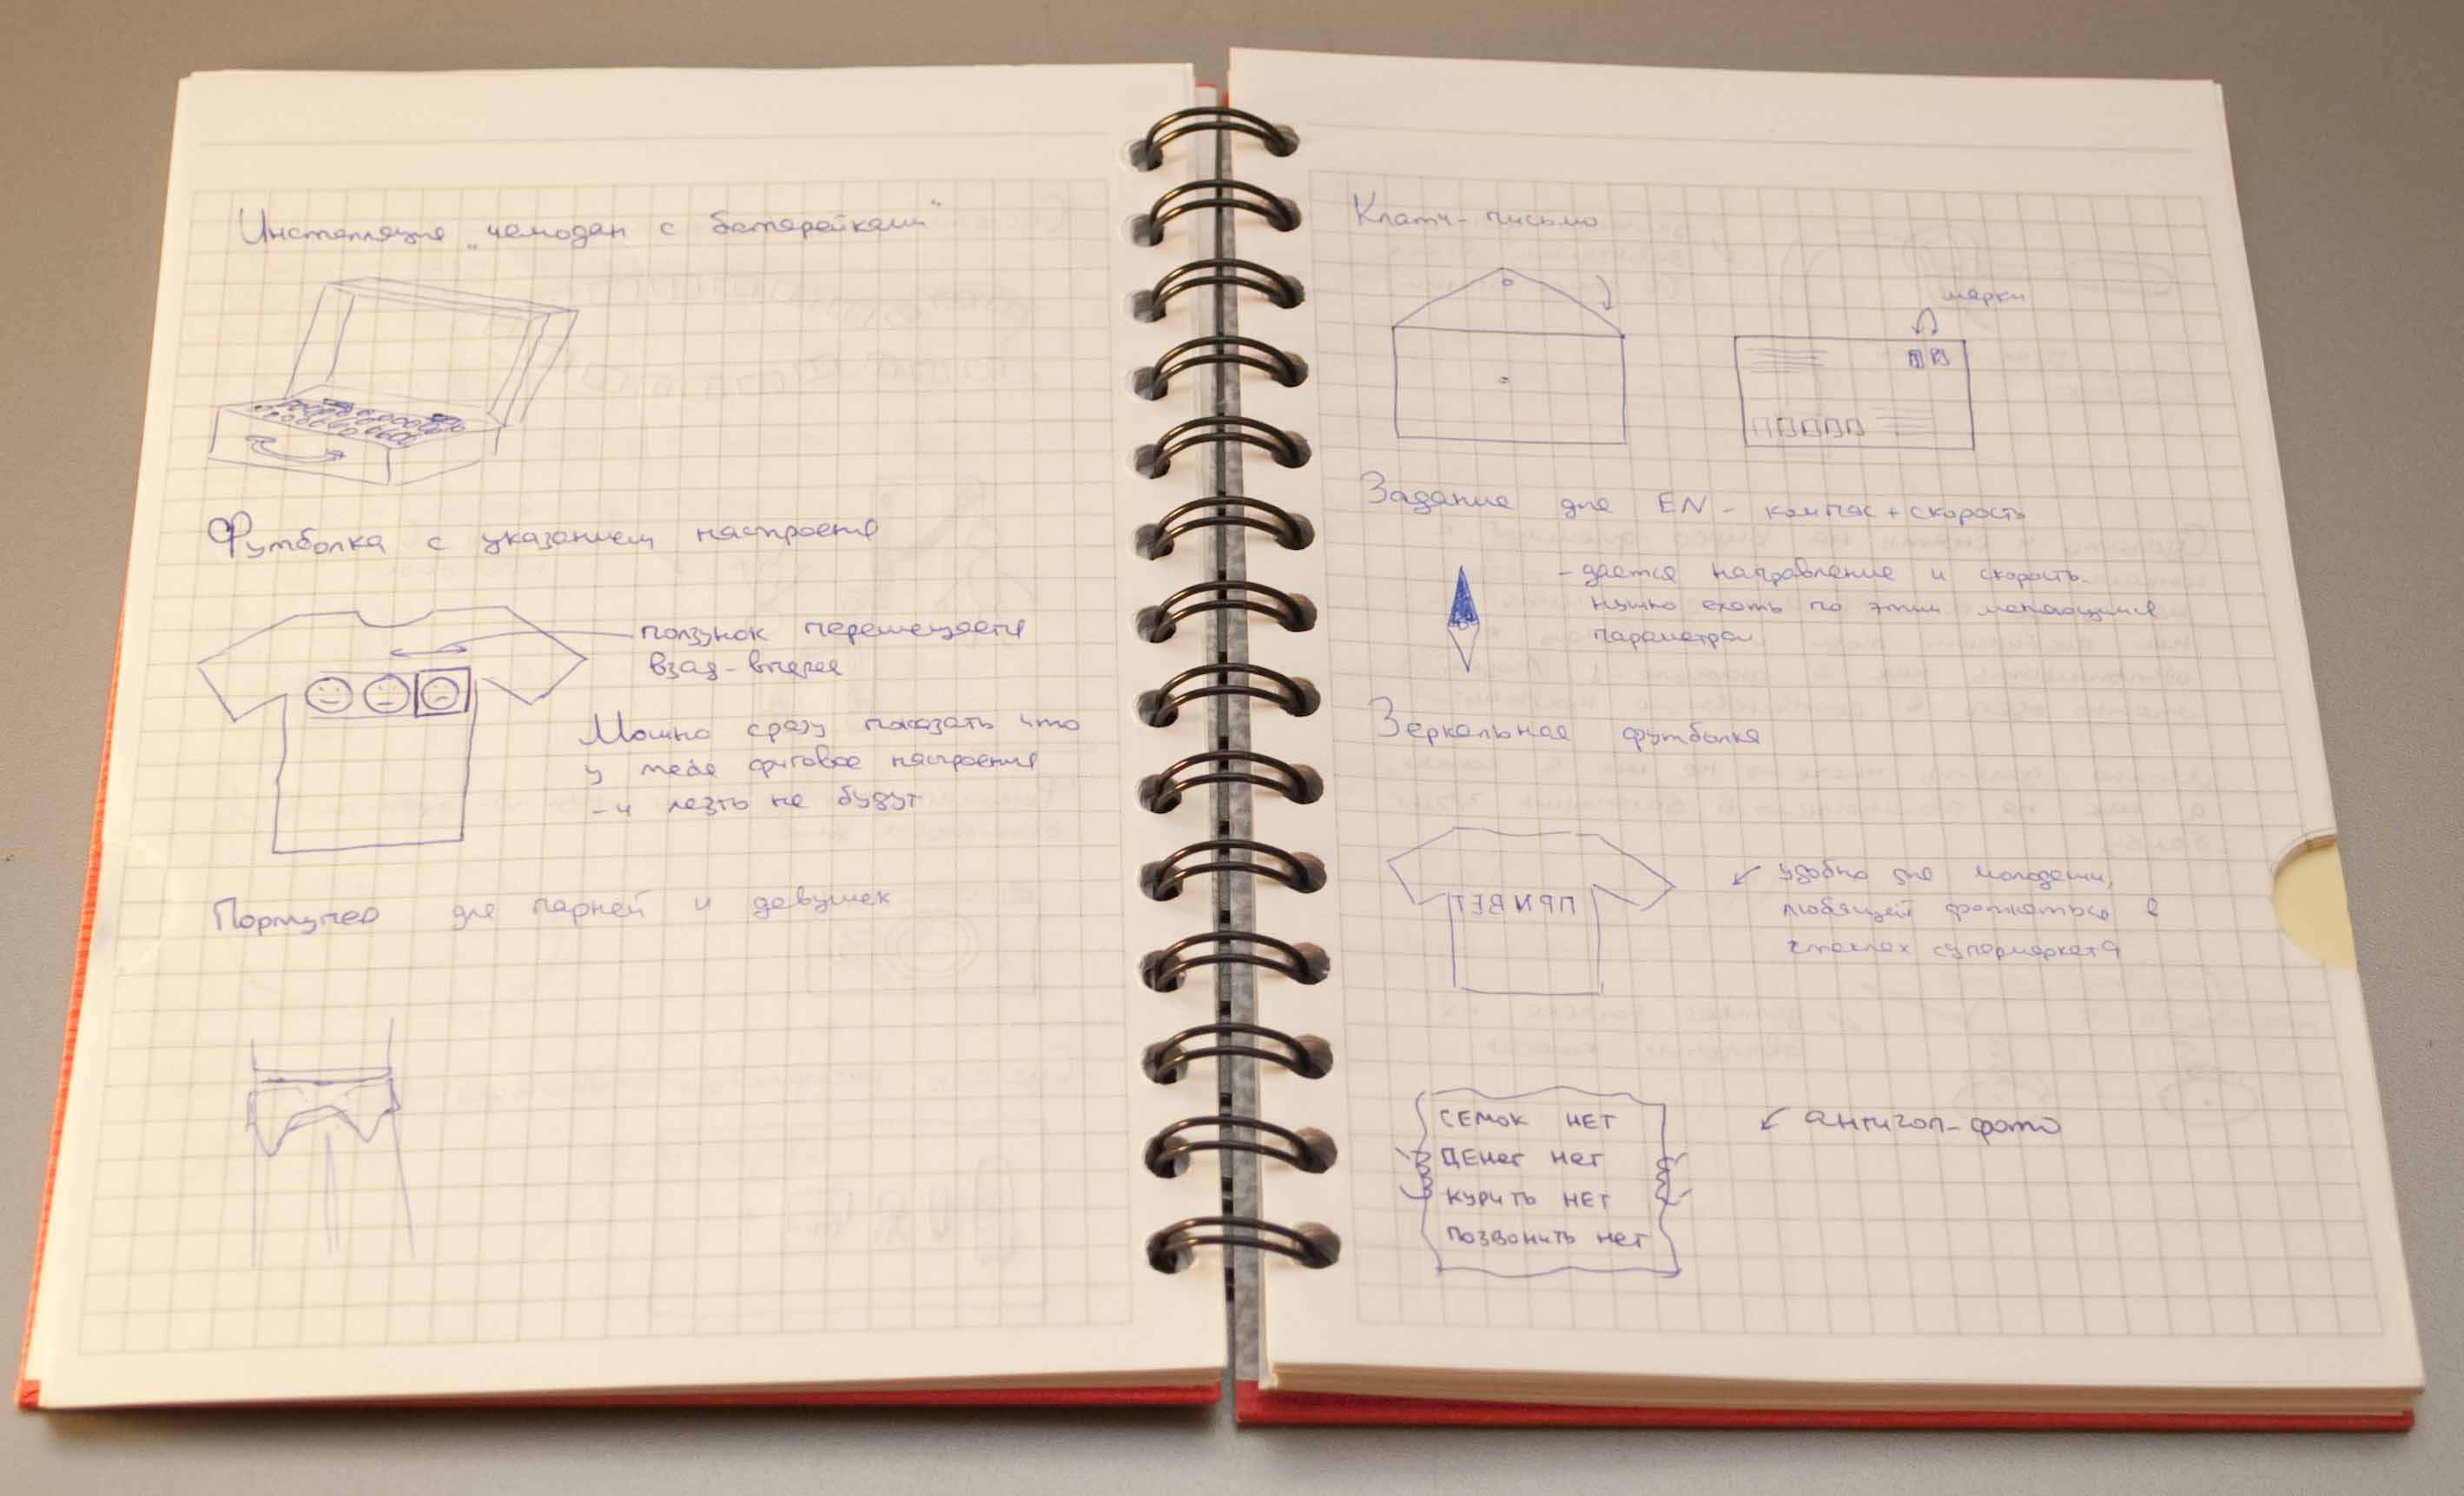 Инсталляция „чемодан с батарейками“
Футболка с указанием настроения
ползунок перемещается
взад-вперед
Можно сразу показать что
у тебя фиговое настроение
- и лезть не будут
Портупея для парней и девушек
Клатч-письмо
марки
Задание для EN - компас + скорость
- дается направление и скорость.
нужно ехать по этим меняющимся
параметрам
Зеркальная футболка
ПРИВЕТ
удобно для молодежи,
любящей фоткаться в
стеклах супермаркета
СЕМОК НЕТ
ДЕНЕГ НЕТ
КУРИТЬ НЕТ
ПОЗВОНИТЬ НЕТ
антигоп-фото